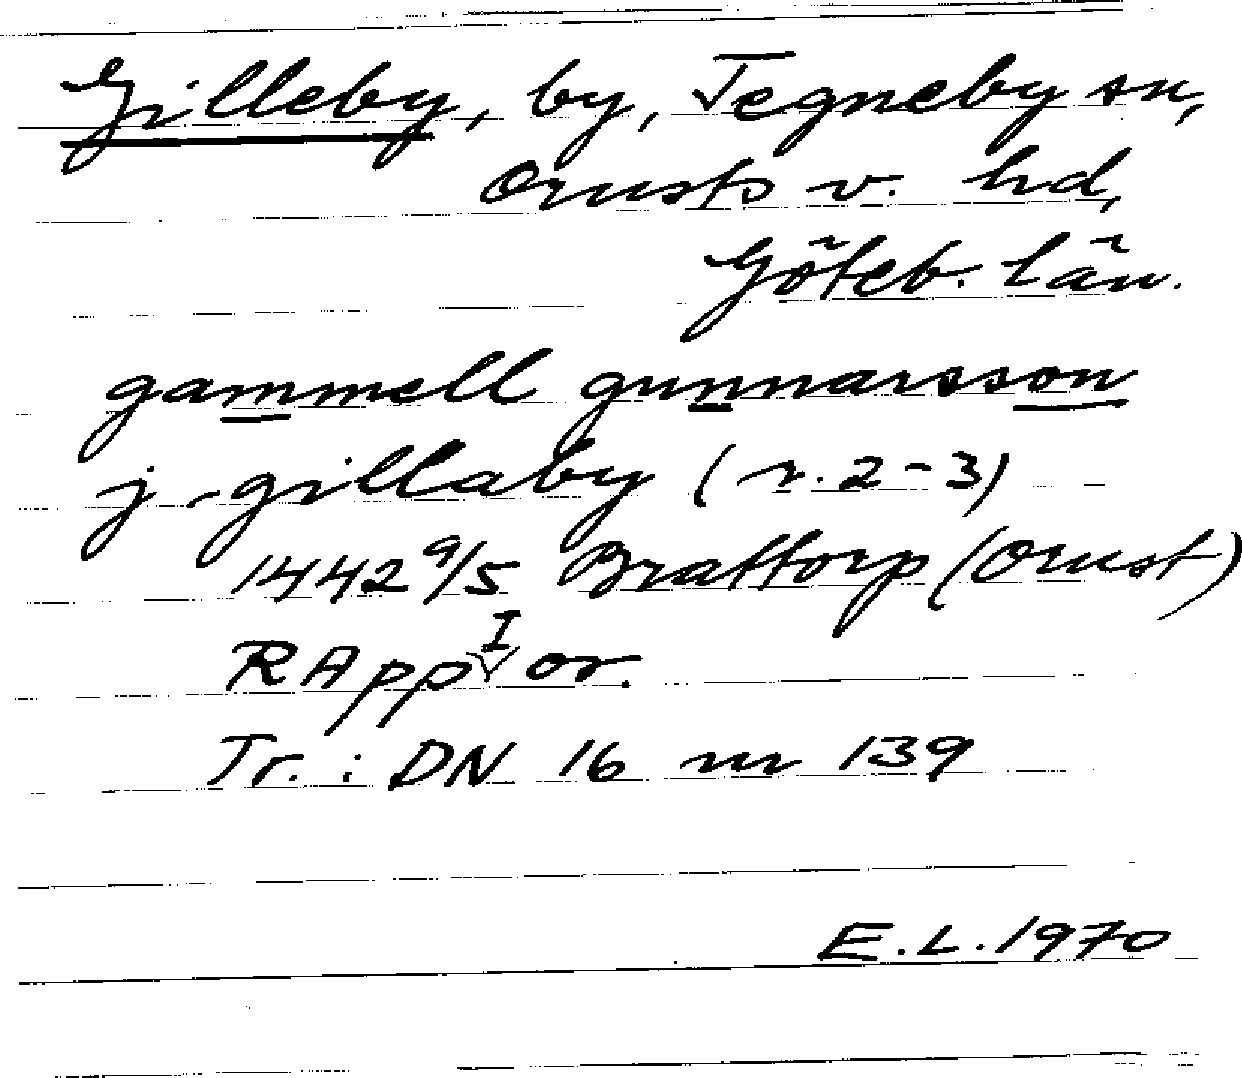 Gilleby, by, Tegneby sn,
Orusts v. hd,
Göteb. län.
gammell gunnarsson
j gillaby (r. 2-3)
1442 9/5 Brattorp (Orust)
RApp I or.
Tr.: DN 16 nr 139
E.L. 1970